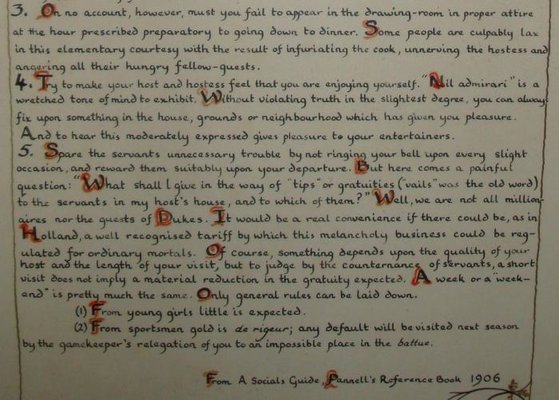 3. On no account, however, must you fail to appear in the drawing-room in proper attire
at the hour prescribed preparatory to going down to dinner. Some people are culpably lax
in this elementary courtesy with the result of infuriating the cook, unnerving the hostess and
angering all their hungry fellow-guests.
4. Try to make your host and hostess feel that you are enjoying yourself. "Nil admirari" is a
wretched tone of mind to exhibit. Without violating truth in the slightest degree, you can always
fix upon something in the house, grounds or neighbourhood which has given you pleasure.
And to hear this moderately expressed gives pleasure to your entertainers.
5. Spare the servants unnecessary trouble by not ringing your bell upon every slight
occasion, and reward them suitably upon your departure. But here comes a painful
question: "What shall I give in the way of "tips" or gratuities ("vails" was the old word)
to the servants in my host's house, and to which of them?" Well, we are not all million-
aires nor the guests of Dukes. It would be a real convenience if there could be, as in
Holland, a well recognised tariff by which this melancholy business could be reg-
ulated for ordinary mortals. Of course, something depends upon the quality of your
host and the length of your visit, but to judge by the counternance of servants, a short
visit does not imply a material reduction in the gratuity expected. A week or a "week-
end" is pretty much the same. Only general rules can be laid down.
(1) From young girls little is expected.
(2) From sportsmen gold is de rigeur; any default will be visited next season
by the gamekeeper's relegation of you to an impossible place in the battue.
From A Socials Guide, Pannell's Reference Book 1906